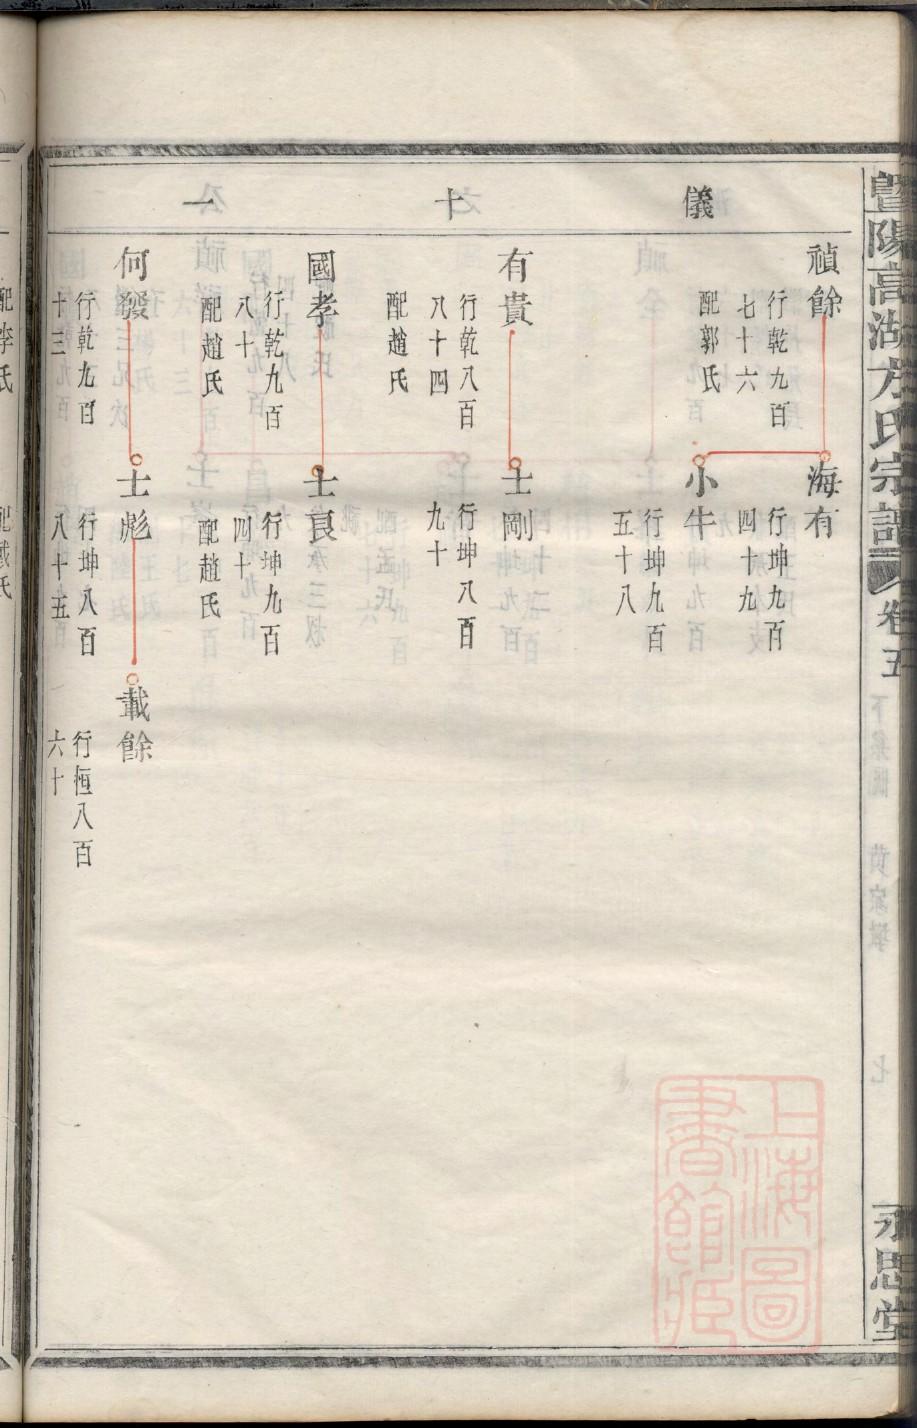 暨陽高湖方氏宗譜
卷五
永思堂
儀 十 一
禎餘
行乾九百
七十六
配郭氏
海有
行坤九百
四十九
小牛
行坤九百
五十八
有貴
行乾八百
八十四
配趙氏
士剛
行坤八百
九十
國孝
行乾九百
八十
配趙氏
士良
行坤九百
四十
配趙氏
何發
行乾九百
十三
士彪
行坤八百
八十五
載餘
行恒八百
六十
配李氏
配戴氏
上海圖
書館藏